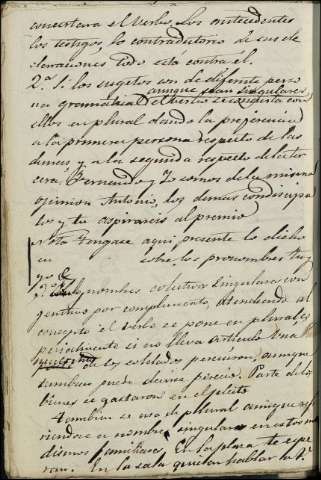 concertara el verbo, Los antecedentes
los testigos, lo contradictorio de sus de
claraciones todo esta contra él.
2.ª Si los sugetos son de diferente perso
na gramatical aunque sean singulares
el verbo se concierta con
ellos en plural dando la preferencia
a la primera persona respecto de las
demas y a la segunda respecto de la ter
cera, Fernando y Yo somos de la misma
opinion Antonio, los demas condiscipu
los y tu aspirareis al premio
Nota Tengase aqui presente lo dicho
en sobre los pronombres tu y
yo
3.ª Los nombres colectivos singulares con
genitivo por complemento, atendiendo al
concepto el verbo se pone en plural es
pecialmente si no lleva articulo Una
de los soldados perecieron, aunque
tambien puede decirse pereció. Parte de los
bienes se gastaron en el pleito
Tambien se usa de plural aunque refi
riendose a nombres singulares en estos mo
dismos familiares, En la plaza te espe
ran. En la sala quieren hablar a V.